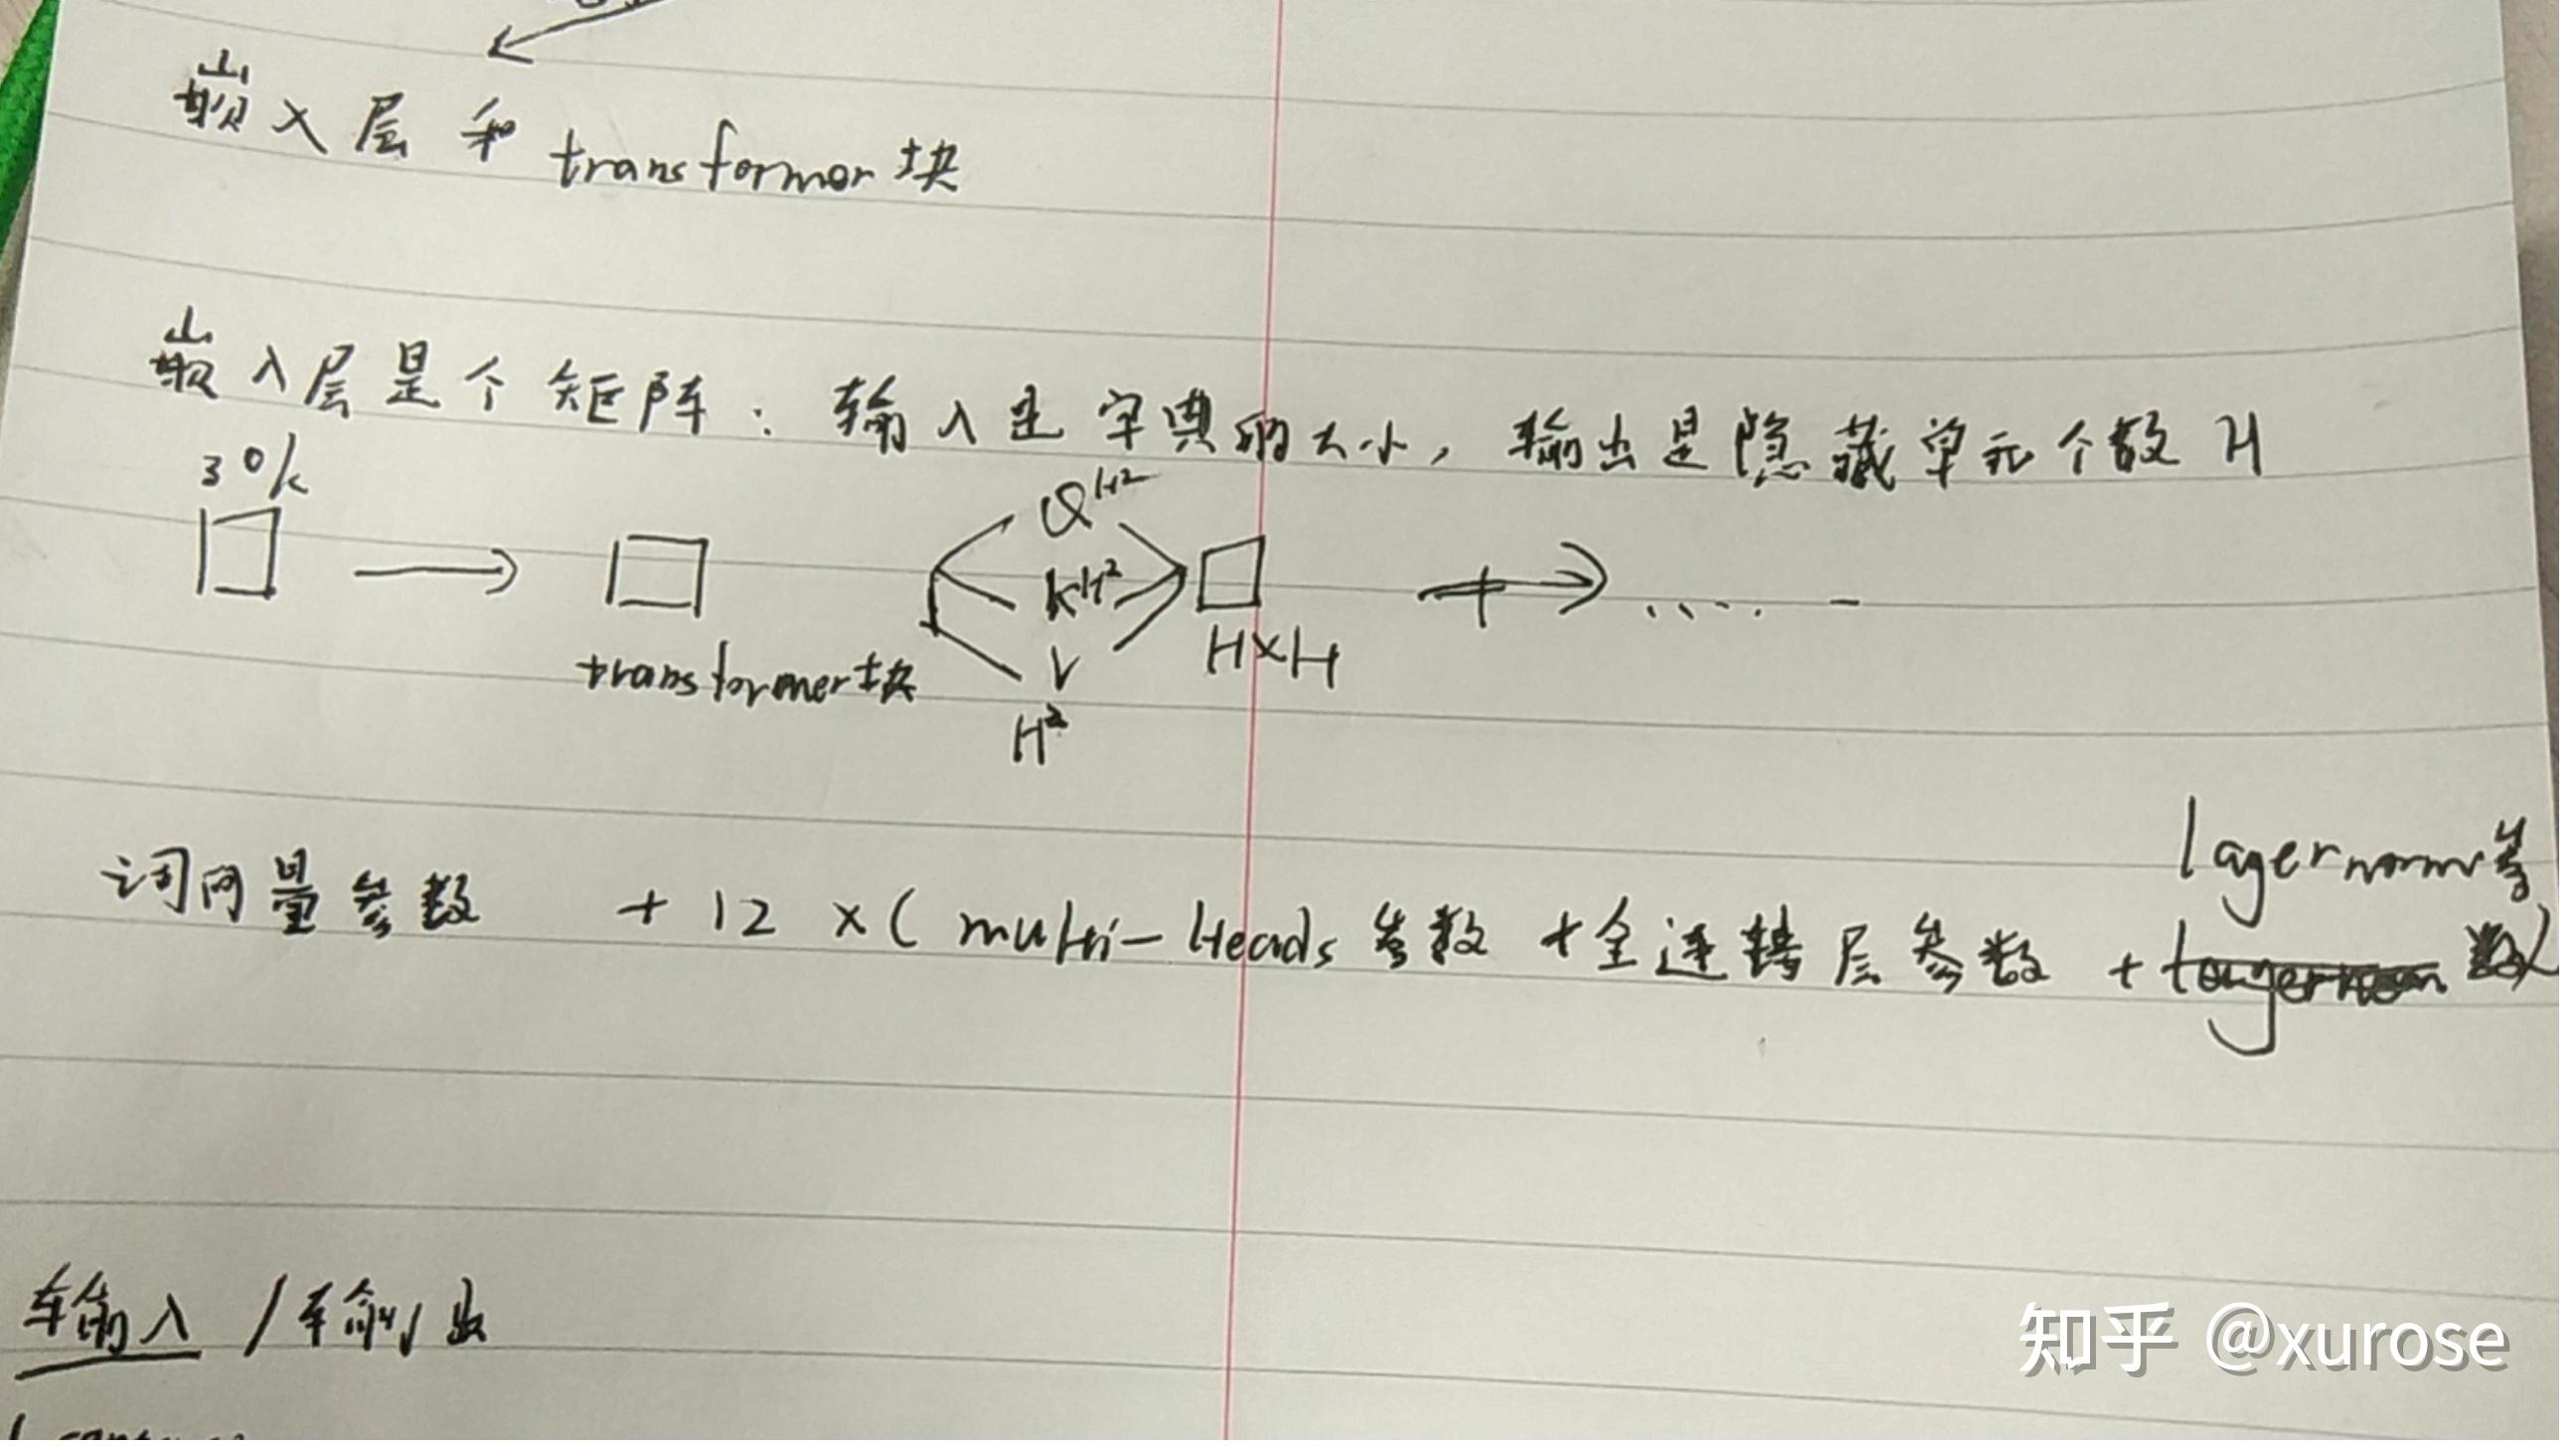 嵌入层和 transformer块
嵌入层是个矩阵：输入是字典的大小，输出是隐藏单元个数 H
30k
Q H²
K H²
V
H²
H×H
transformer块
layernorm等
词向量参数 + 12 ×( multi-Heads 参数 +全连接层参数 + 数)
输入 / 输出
知乎 @xurose